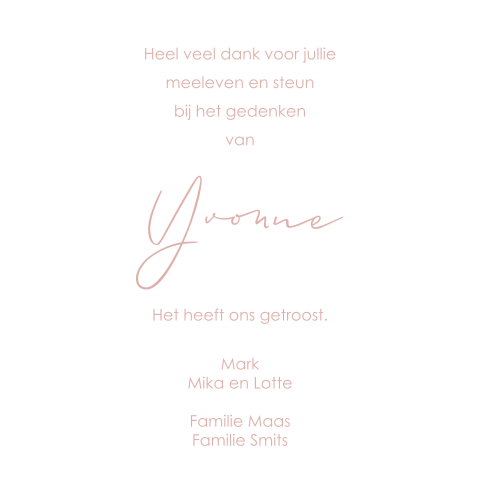 Heel veel dank voor jullie
meeleven en steun
bij het gedenken
van
Yvonne
Het heeft ons getroost.
Mark
Mika en Lotte
Familie Maas
Familie Smits